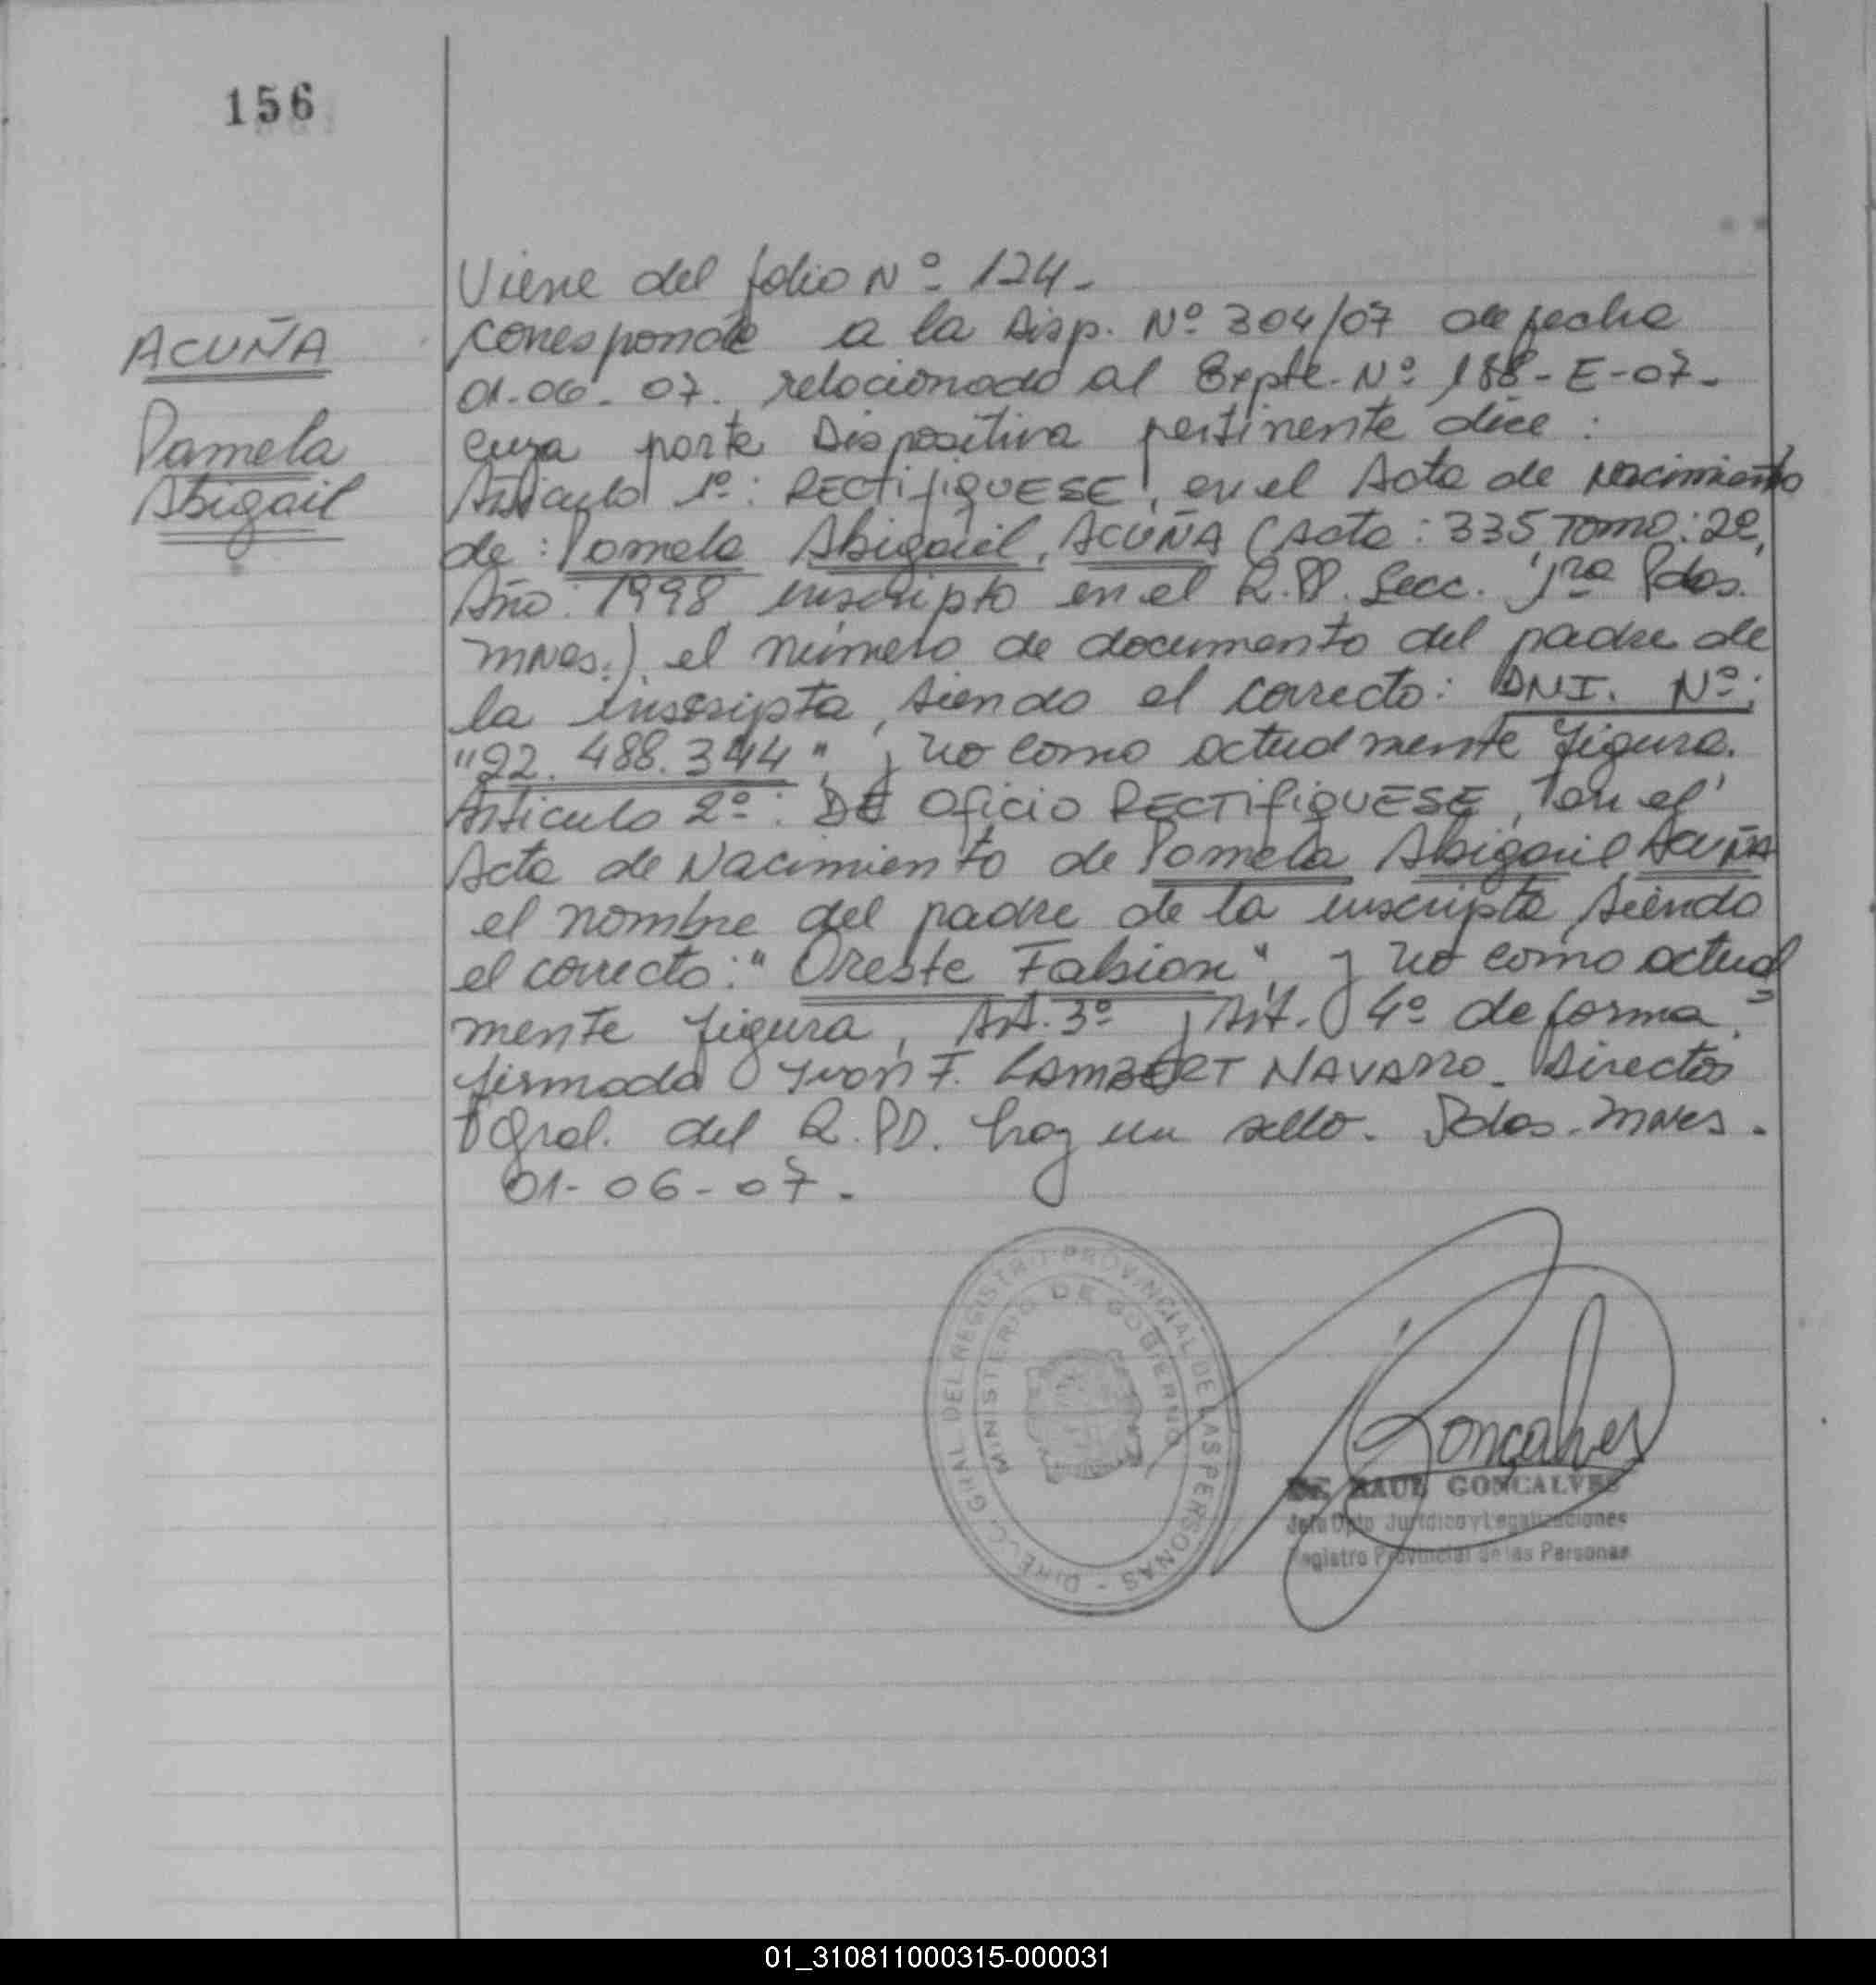 156
ACUÑA
Pamela
Abigail
Viene del folio Nº 124-
corresponde a la Disp. Nº 304/07 de fecha
01-06-07. relacionado al Expte. Nº 188-E-07-
cuya parte Dispositiva pertinente dice:
Articulo 1º: RECTIFIQUESE, en el Acta de Nacimiento
de: Pamela Abigail, ACUÑA (Acta: 335, Tomo: 2º,
Año: 1998 inscripto en el R.PP. Secc. 1ra Pdas.
Mnes.) el número de documento del padre de
la inscripta, siendo el correcto: DNI. Nº:
"22.488.344", y no como actualmente figura.
Articulo 2º: DE Oficio RECTIFIQUESE, en el
Acta de Nacimiento de Pamela Abigail ACUÑA
el nombre del padre de la inscripta, siendo
el correcto: "Oreste Fabian", y no como actual
mente figura, Art. 3º y Art. 4º de forma.=
firmada Ivon F. LAMBERT NAVARRO. Director
Gral. del R.PP. hay un sello. Pdas. Mnes.
01-06-07.
DIREC. GRAL. DEL REGISTRO PROVINCIAL DE LAS PERSONAS -
MINISTERIO DE GOBIERNO
Goncalves
RAUL GONCALVES
Jefe Dpto Jurídico y Legalizaciones
Registro Provincial de las Personas
01_310811000315-000031